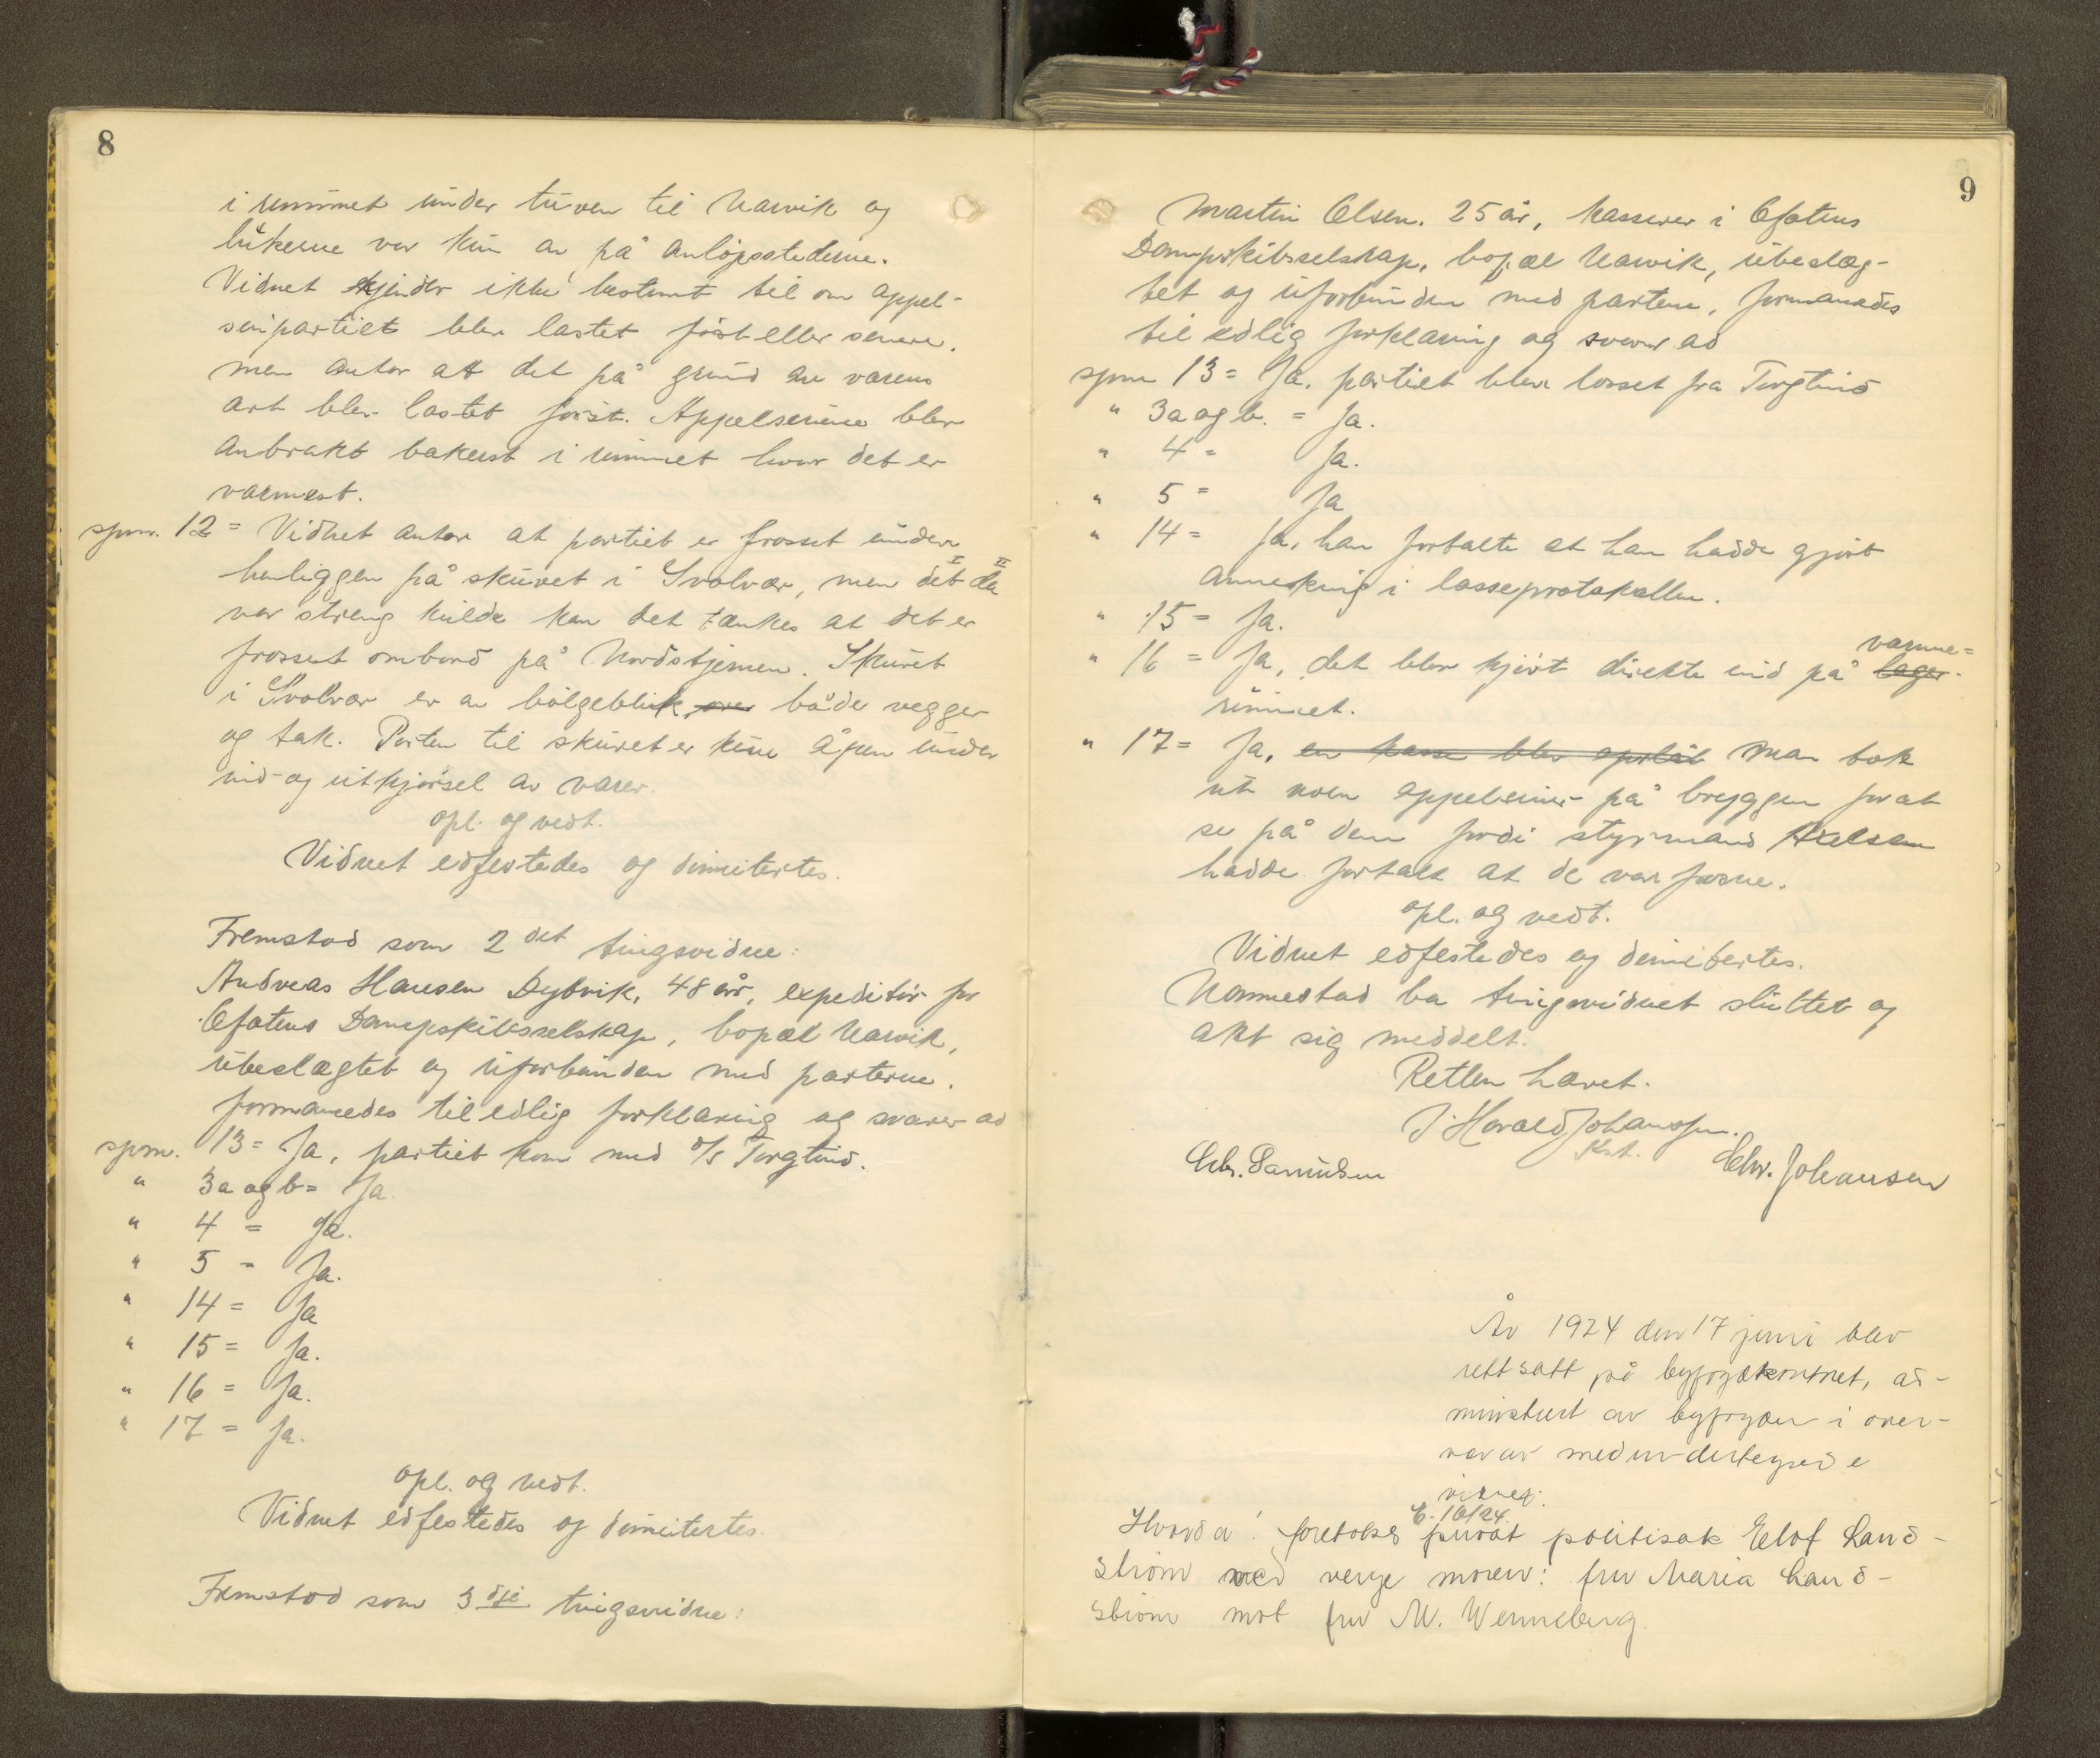 8
i rummet under turen til Narvik og
lukerne var kun av på anløpsstederne.
Vidnet kjender ikke bestemt til om appel-
sinpartiet blev lastet først eller senere,
men antar at det på grund av varens
art blev lastet først. Appelsinene blev
anbrakt bakerst i rummet hvor det er
varmest.
spm. 12 = Vidnet antar at partiet er frosset under
henliggen på skuret i Svolvær, men det da
var streng kulde kan det tænkes at det er
frosset ombord på Nordstjernen. Skuret
i Svolvær er av bølgeblik, både vegger
og tak. Porten til skuret er kun åpen under
ind- og utkjørsel av varer.
opl. og vedt.
Vidnet edfestedes og dimitertes.
Fremstod som 2det tingsvidne:
Andreas Hansen Dybvik, 48 år, expeditør for
Ofotens Dampskibsselskap, bopæl Narvik,
ubeslægtet og uforbunden med parterne.
formanedes til edlig forklaring og svarer ad
spm. 13 = Ja, partiet kom med d/s Torgtind.
" 3a og b = Ja.
" 4 = Ja.
" 5 = Ja.
" 14 = Ja
" 15 = Ja.
" 16 = Ja.
" 17 = Ja.
opl. og vedt.
Vidnet edfestedes og dimitertes.
Fremstod som 3dje tingsvidne:
9
Martin Olsen. 25 år, kasserer i Ofotens
Dampskibsselskap, bopæl Narvik, ubeslæg-
tet og uforbunden med partene, formanedes
til edlig forklaring og svarer ad
spm 13 = Ja, partiet blev losset fra Torgtind
" 3a og b. = Ja.
" 4 = Ja.
" 5 = Ja
" 14 = Ja, han fortalte at han hadde gjort
anmerkning i losseprotokollen.
" 15 = Ja.
" 16 = Ja, det blev kjørt direkte ind på lager- varme-
rummet.
" 17 = Ja, en kasse blev oplåt man tok
ut noen appelsiner på bryggen for at
se på dem fordi styrmand
hadde fortalt at de var frosne.
opl. og vedt.
Vidnet edfestedes og dimitertes.
Normestad ba tingsvidnet sluttet og
akt sig meddelt.
Retten hævet.
J. Harald Johanssen.
Kst.
Chr. Samuelsen Chr. Johansen
År 1924 den 17 juni blev
rett satt på byfogdkontoret, ad-
ministrert av byfogden i over-
vær av medundertegnede
vidner:
Hvorda: foretokes privat politisak E. 16/24. Elof Land-
strøm med verge moren: fru Maria Land-
strøm mot fru M. Wenneberg.